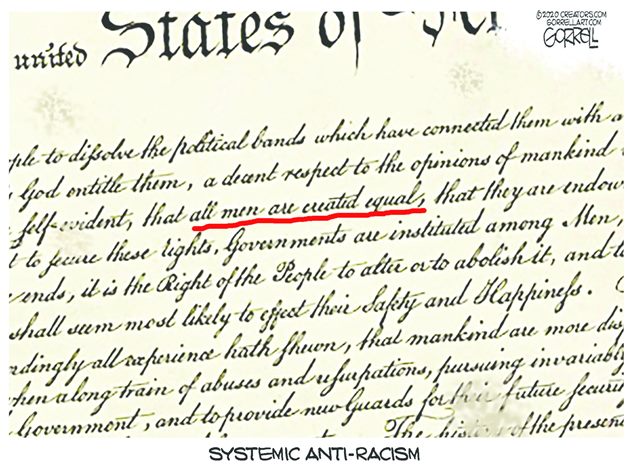 ©2020 CREATORS.COM
GORRELLART.COM
GORRELL
united States of
ple to dissolve the political bands which have connected them with a
God entitle them, a decent respect to the opinions of mankind
self-evident, that all men are created equal, that they are endow
to secure these rights, Governments are instituted among Men,
ends, it is the Right of the People to alter or to abolish it, and to
shall seem most likely to effect their Safety and Happiness.
rdingly all experience hath shewn, that mankind are more dis
hen a long train of abuses and usurpations, pursuing invariably
Government, and to provide new Guards for their future secur
The history of the presen
SYSTEMIC ANTI-RACISM